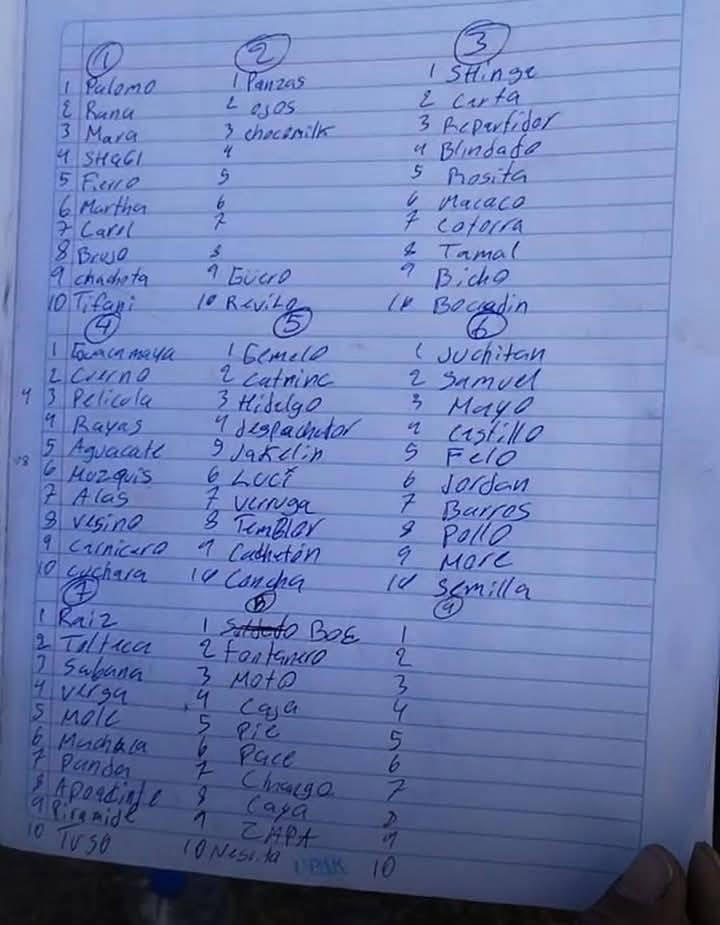 1
1 Palomo
2 Rana
3 Mara
4 SHAGI
5 Fierro
6 Martha
7 Carol
8 Brujo
9 chachota
10 Tifani
2
1 Panzas
2 ojos
3 chocomilk
4
5
6
7
8
9 Güero
10
3
1 Stinge
2 Carta
3 Repartidor
4 Blindado
5 Rosita
6 Macaco
7 Cotorra
8 Tamal
9 Bicho
10 Bocadin
4
1 Guacamaya
2 Cuerno
3 Pelicula
4 Rayas
5 Aguacate
6 Muzquis
7 Alas
8 vesino
9 Carnicero
10 cuchara
5
1 Gemelo
2
3 Hidalgo
4 despachador
5 Jakelin
6 Luci
7 verruga
8 Temblor
9 Cachetón
10 Concha
6
1 Juchitan
2 Samuel
3 Mayo
4 Castillo
5 Felo
6 Jordan
7 Barros
8 Pollo
9 More
10 Semilla
7
1 Raiz
2 Tolteca
3 Sabana
4 verga
5 Mole
6 Machaca
7 Panda
8
9 Piramide
10 Tuso
8
1 BOE
2 Fontanero
3 Moto
4 Caja
5 Pie
6 Pace
7 Chango
8 Caya
9 ZAPA
10
9
1
2
3
4
5
6
7
8
9
10